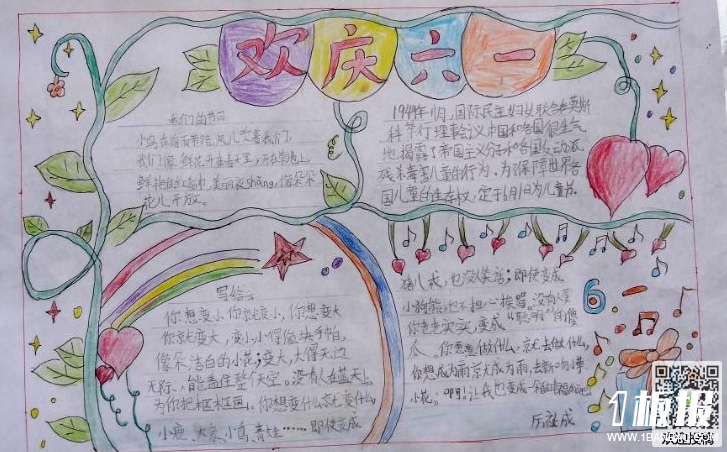 欢庆六一
我们的节日
小鸟在前面带路,风儿吹着我们,
我们像鲜花开在春天里,
鲜艳的红领巾,美丽衣shang,像朵朵
花儿开放。
1949年11月,国际民主妇女联合在莫斯
科举行理事会议,中国和各国
地揭露了帝国主义分子和各国反动派
残杀毒害儿童的行为,为了保障世界各
国儿童的生存权,定于6月1日为儿童节
写给
你想变小,你就变小,你想变大
你就变大,变小,小得像块手帕,
像朵洁白的小花;变大,大得无边
无际,能盖住整个天空。没有人在蓝天上
为你把框框画。你想变什么就变什么,
小鹿、大象、小鸟、青蛙……即使变成
猪八戒,也没人笑话;即使变成
小狗熊,也不担心挨骂,没有人要
你老老实实,变成“聪明”的傻
瓜。你想做什么,就去做什么,
你想成为雨就成为雨,去
小花。啊!让我也变成一
6一
历祉成
1板报
WWW.1BANBAO.COM
欢迎投稿